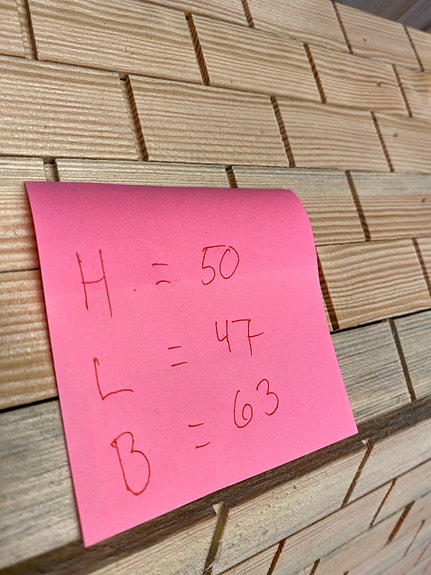 H = 50
L = 47
B = 63